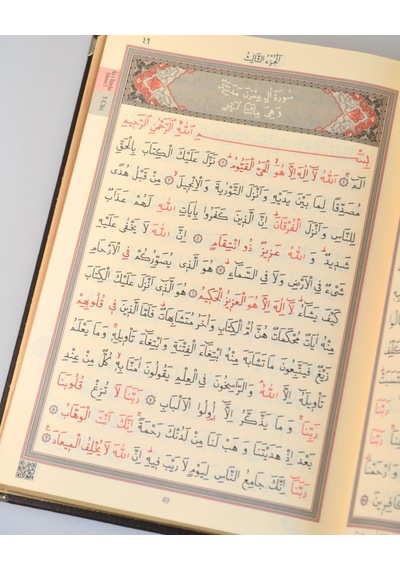 ٤٩
اَلْجُزْءُ الثَّالِثُ
سُورَةُ اٰلِ عِمْرٰنَ مَدَنِيَّةٌ
وَهِىَ مِائَتَا اٰيَةٍ
بِسْمِ اللّٰهِ الرَّحْمٰنِ الرَّحٖيمِ
الٓمٓ ﴿١﴾ اَللّٰهُ لَٓا اِلٰهَ اِلَّا هُوَ الْحَىُّ الْقَيُّومُ ﴿٢﴾ نَزَّلَ عَلَيْكَ الْكِتَابَ بِالْحَقِّ
مُصَدِّقًا لِمَا بَيْنَ يَدَيْهِ وَاَنْزَلَ التَّوْرٰيةَ وَالْاِنْجٖيلَ ﴿٣﴾ مِنْ قَبْلُ هُدًى
لِلنَّاسِ وَاَنْزَلَ الْفُرْقَانَ اِنَّ الَّذٖينَ كَفَرُوا بِاٰيَاتِ اللّٰهِ لَهُمْ عَذَابٌ
شَدٖيدٌ وَاللّٰهُ عَزٖيزٌ ذُو انْتِقَامٍ ﴿٤﴾ اِنَّ اللّٰهَ لَا يَخْفٰى عَلَيْهِ
شَىْءٌ فِى الْاَرْضِ وَلَا فِى السَّمَٓاءِ ﴿٥﴾ هُوَ الَّذٖى يُصَوِّرُكُمْ فِى الْاَرْحَامِ
كَيْفَ يَشَٓاءُ لَٓا اِلٰهَ اِلَّا هُوَ الْعَزٖيزُ الْحَكٖيمُ ﴿٦﴾ هُوَ الَّذٖٓى اَنْزَلَ عَلَيْكَ الْكِتَابَ
مِنْهُ اٰيَاتٌ مُحْكَمَاتٌ هُنَّ اُمُّ الْكِتَابِ وَاُخَرُ مُتَشَابِهَاتٌ فَاَمَّا الَّذٖينَ فٖى قُلُوبِهِمْ
زَيْغٌ فَيَتَّبِعُونَ مَا تَشَابَهَ مِنْهُ ابْتِغَٓاءَ الْفِتْنَةِ وَابْتِغَٓاءَ تَاْوٖيلِهٖ وَمَا يَعْلَمُ
تَاْوٖيلَهُٓ اِلَّا اللّٰهُ وَالرَّاسِخُونَ فِى الْعِلْمِ يَقُولُونَ اٰمَنَّا بِهٖ كُلٌّ مِنْ عِنْدِ
رَبِّنَا وَمَا يَذَّكَّرُ اِلَّٓا اُولُوا الْاَلْبَابِ ﴿٧﴾ رَبَّنَا لَا تُزِغْ قُلُوبَنَا
بَعْدَ اِذْ هَدَيْتَنَا وَهَبْ لَنَا مِنْ لَدُنْكَ رَحْمَةً اِنَّكَ اَنْتَ الْوَهَّابُ ﴿٨﴾
رَبَّنَٓا اِنَّكَ جَامِعُ النَّاسِ لِيَوْمٍ لَا رَيْبَ فٖيهِ اِنَّ اللّٰهَ لَا يُخْلِفُ الْمٖيعَادَ ﴿٩﴾
49